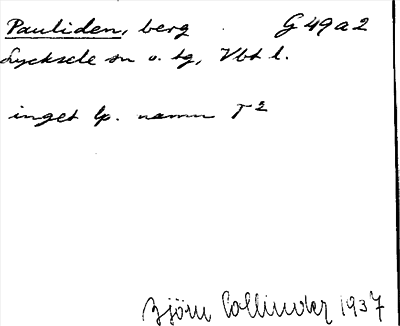 Pauliden, berg G 49 a 2
Lycksele sn o. tg, Vbt l.
inget lp. namn T²
Björn Collinder 1937